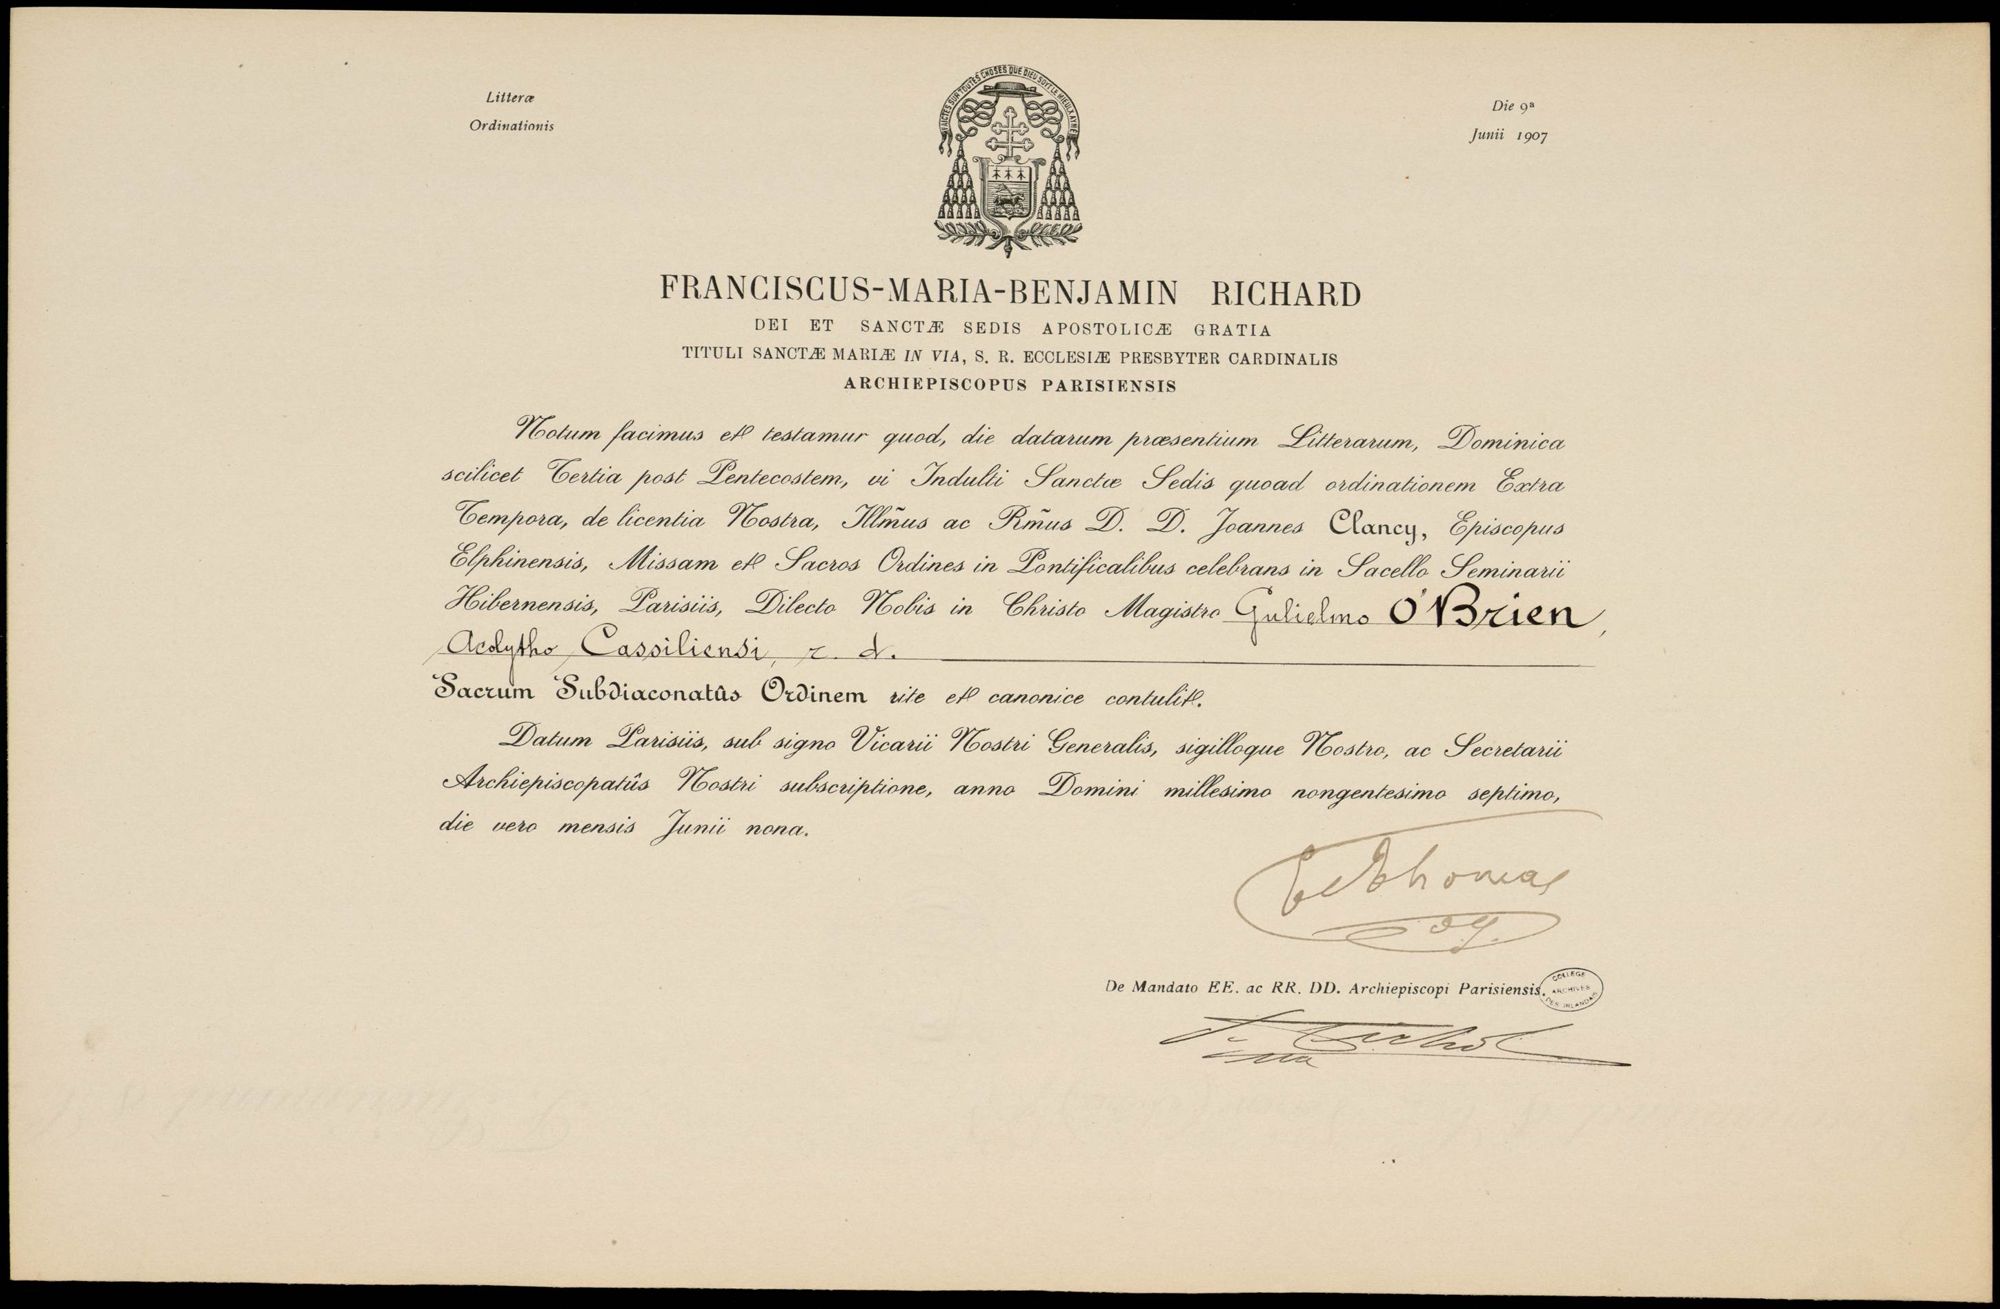 Litteræ
Ordinationis
Die 9ª
Junii 1907
FAICTES SUR TOUTES CHOSES QUE DIEU SOYT LE MIEULX AYMÉ
FRANCISCUS-MARIA-BENJAMIN RICHARD
DEI ET SANCTÆ SEDIS APOSTOLICÆ GRATIA
TITULI SANCTÆ MARIÆ IN VIA, S. R. ECCLESIÆ PRESBYTER CARDINALIS
ARCHIEPISCOPUS PARISIENSIS
Notum facimus et testamur quod, die datarum præsentium Litterarum, Dominica
scilicet Tertia post Pentecostem, vi Indulti Sanctæ Sedis quoad ordinationem Extra
Tempora, de licentia Nostra, Illm̃us ac Rm̃us D. D. Joannes Clancy, Episcopus
Elphinensis, Missam et Sacros Ordines in Pontificalibus celebrans in Sacello Seminarii
Hibernensis, Parisiis, Dilecto Nobis in Christo Magistro Gulielmo O'Brien,
Acolytho Cassiliensi, r. d.
Sacrum Subdiaconatûs Ordinem rite et canonice contulit.
Datum Parisiis, sub signo Vicarii Nostri Generalis, sigilloque Nostro, ac Secretarii
Archiepiscopatûs Nostri subscriptione, anno Domini millesimo nongentesimo septimo,
die vero mensis Junii nona.
Thomas
vg.
De Mandato EE. ac RR. DD. Archiepiscopi Parisiensis.
COLLEGE
ARCHIVES
DES IRLANDAIS